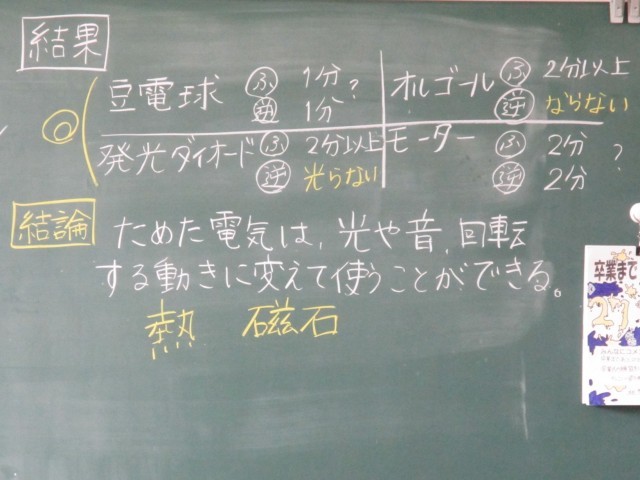 結果
豆電球 ふ 1分 ?
逆 1分
オルゴール ふ 2分以上
逆 ならない
発光ダイオード ふ 2分以上
逆 光らない
モーター ふ 2分 ?
逆 2分
結論 ためた電気は、光や音、回転
する動きに変えて使うことができる。
熱 磁石
卒業まで
27